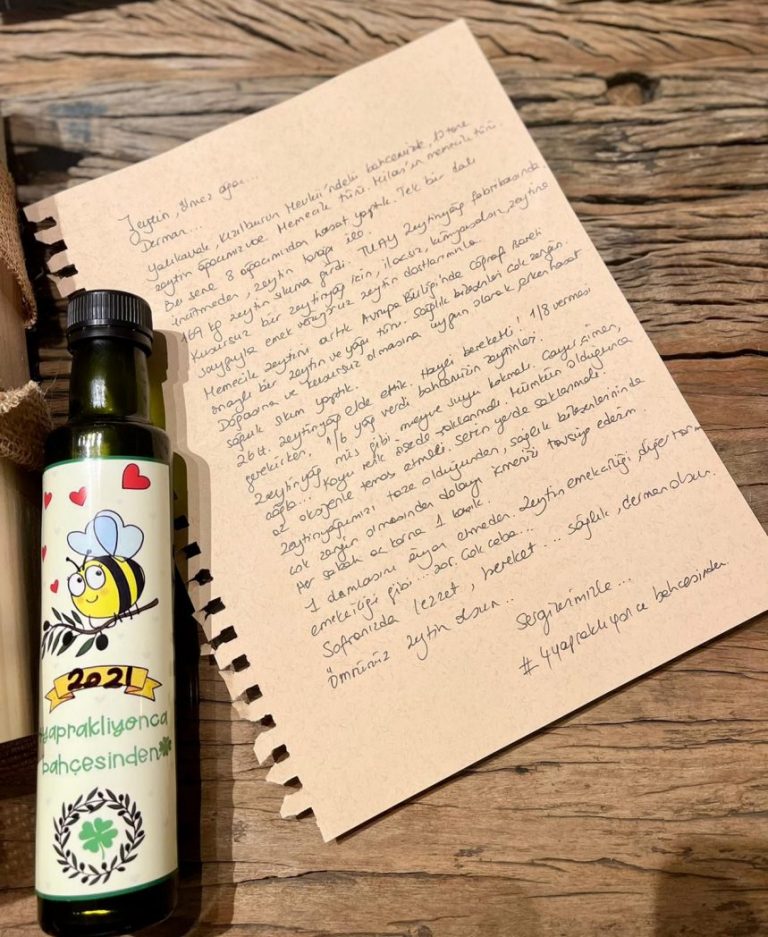 Zeytin, ölmez ağaç...
Derman...
Yalıkavak, Kızılburun Mevkii'ndeki bahçemizde, 12 tane
zeytin ağacımız var. Memecik türü. Milas'ın memecik türü.
Bu sene 8 ağacımızdan hasat yaptık. Tek bir dalı
incitmeden, zeytin tarağı ile.
169 kg zeytin sıkıma girdi. TUAY Zeytinyağ fabrikasında
Kusursuz bir zeytinyağ için, ilaçsız, kimyasalsız, zeytine
saygıyla emek verdiğimiz zeytin dostlarımızla.
Memecik zeytini artık Avrupa Birliği'nde coğrafi işareti
onaylı bir zeytin ve yağı türü. Sağlık bileşenleri çok zengin.
Doğasına ve kusursuz olmasına uygun olarak, erken hasat
soğuk sıkım yaptık.
26 lt. zeytinyağ elde ettik. Hayli bereketli! 1/8 vermesi
gerekirken, 1/6 yağ verdi bahçemizin zeytinleri.
Zeytinyağ mis gibi meyve suyu kokmalı. Çayır çimen,
çağla... Koyu renk şişede saklanmalı. Mümkün olduğunca
az oksijenle temas etmeli. Serin yerde saklanmalı.
Zeytinyağımızı taze olduğundan, sağlık bileşenlerinin de
çok zengin olmasından dolayı içmenizi tavsiye ederim.
Her sabah aç karna 1 kaşık.
1 damlasını ziyan etmeden. Zeytin emekçiliği, diğer tarım
emekçiliği gibi... zor. Çok çaba...
Sofranızda lezzet, bereket... sağlık, derman olsun.
Ömrünüz zeytin olsun...
Sevgilerimle...
#4yapraklıyonca bahçesinden
2021
yapraklıyonca
bahçesinden